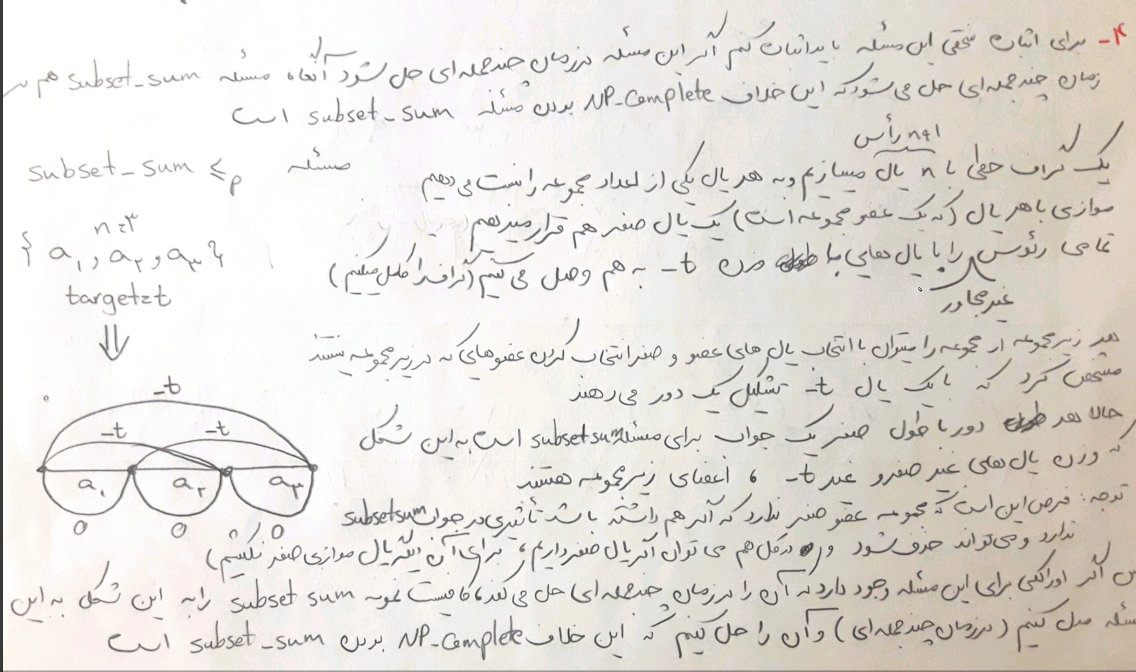 ۴- برای اثبات سختی این مسئله باید اثبات کنم اگر این مسئله در زمان چندجمله‌ای حل شود آنگاه مسئله subset_sum هم در
زمان چندجمله‌ای حل می‌شود که این خلاف NP-Complete بودن مسئله subset_sum است
n+1 رأس
یک گراف خطی با n یال میسازیم و به هر یال یکی از اعداد مجموعه را نسبت می‌دهیم
موازی با هر یال (که یک عضو مجموعه است) یک یال صفر هم قرار میدهم
تمامی رئوس را با یال هایی با وزن -t به هم وصل می کنیم (گراف را کامل میکنیم)
غیر مجاور
subset_sum ≤p مسئله
n=۳
{ a۱, a۲, a۳ }
target=t
⇓
-t
-t -t
a۱ a۲ a۳
0 0 0
هر زیرمجموعه از مجموعه را میتوان با انتخاب یال های عضو و صفر انتخاب کردن عضوهایی که در زیر مجموعه نیستند
مشخص کرد که با یک یال -t تشکیل یک دور می دهند
حالا هر دور با طول صفر یک جواب برای مسئله subsetsum است به این شکل
که وزن یال های غیر صفر و غیر -t ، اعضای زیرمجموعه هستند
توجه: فرض این است که مجموعه عضو صفر ندارد که اگر هم داشته باشد تأثیری در جواب subsetsum
ندارد و می‌تواند حذف شود و در کل هم می توان اگر یال صفر داریم، برای آن دیگر یال موازی صفر نکشیم)
پس اگر اوراکلی برای این مسئله وجود دارد که آن را در زمان چندجمله ای حل می کند، کافیست نمونه subset sum را به این شکل به این
مسئله مدل کنیم (در زمان چندجمله‌ای) و آن را حل کنیم که این خلاف NP-Complete بودن subset_sum است